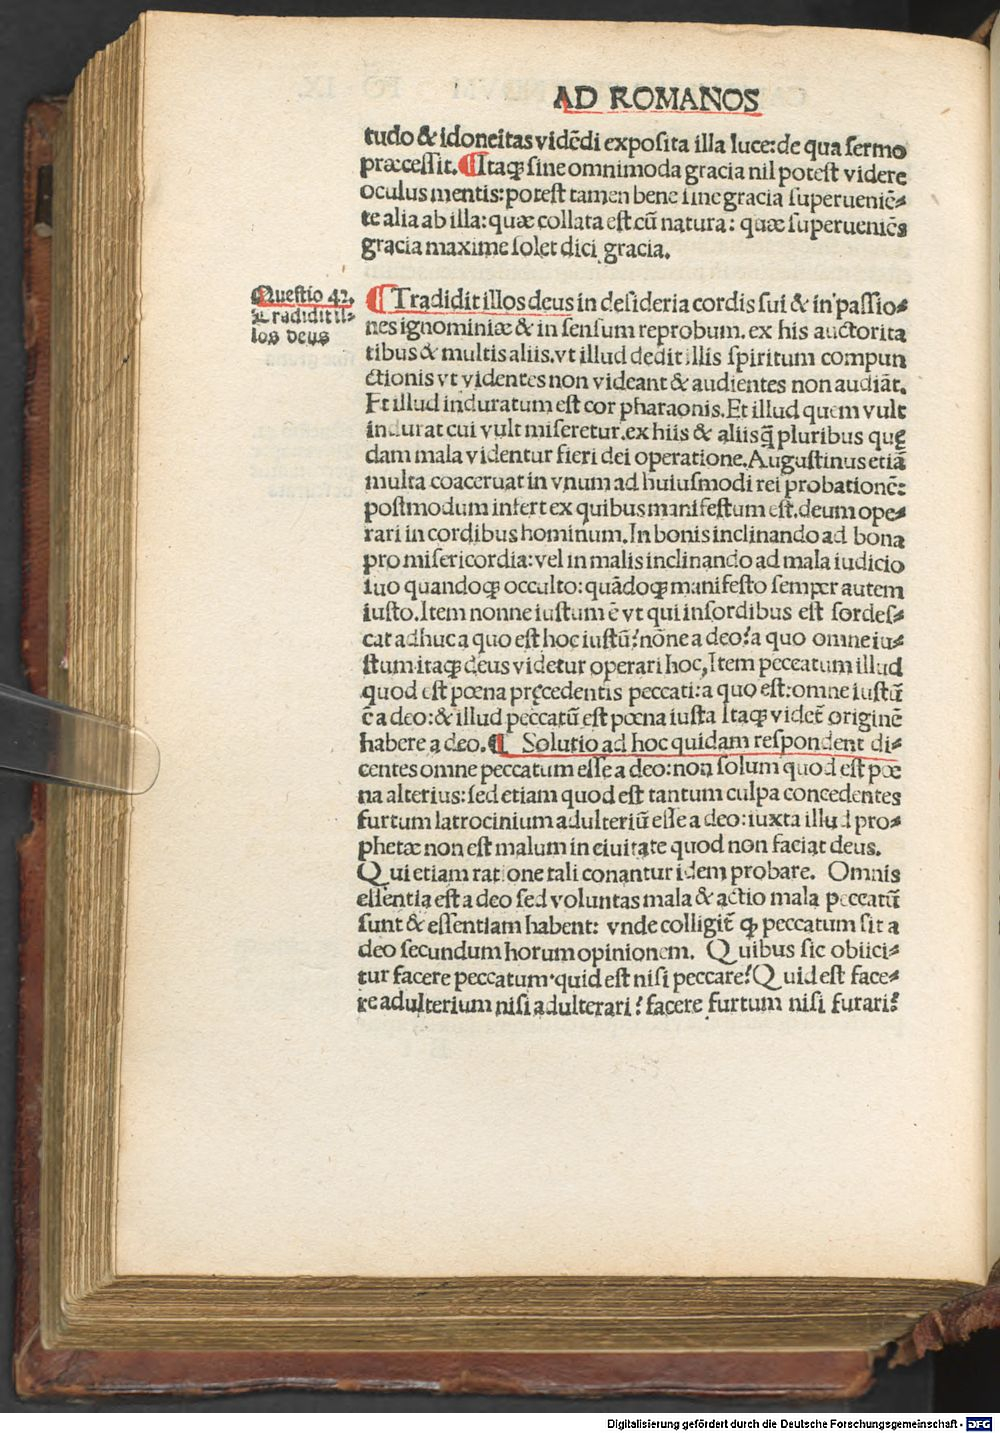 AD ROMANOS
tudo & idoneitas vidēdi exposita illa luce: de qua sermo
præcessit. ¶ Itaqꝫ sine omnimoda gracia nil potest videre
oculus mentis: potest tamen bene sine gracia superueniē⸗
te alia ab illa: quæ collata est cū natura: quæ superueniēs
gracia maxime solet dici gracia.
Questio 42.
Tradidit il⸗
los deus
¶ Tradidit illos deus in desideria cordis sui & in passio⸗
nes ignominiæ & in sensum reprobum. ex his auctorita
tibus & multis aliis. vt illud dedit illis spiritum compun
ctionis vt videntes non videant & audientes non audiāt.
Et illud induratum est cor pharaonis. Et illud quem vult
indurat cui vult miseretur. ex hiis & aliisq̃ pluribus quę
dam mala videntur fieri dei operatione. Augustinus etiā
multa coaceruat in vnum ad huiusmodi rei probationē:
postmodum infert ex quibus manifestum est. deum ope⸗
rari in cordibus hominum. In bonis inclinando ad bona
pro misericordia: vel in malis inclinando ad mala iudicio
suo quandoqꝫ occulto: quādoqꝫ manifesto semper autem
iusto. Item nonne iustum ē vt qui in sordibus est sordes⸗
cat adhuc a quo est hoc iustū? nōne a deo? a quo omne iu⸗
stum itaqꝫ deus videtur operari hoc, Item peccatum illud
quod est pœna pręcedentis peccati: a quo est: omne iustū
ē a deo: & illud peccatū est pœna iusta Itaqꝫ videt̄ originē
habere a deo. ¶ Solutio ad hoc quidam respondent di⸗
centes omne peccatum esse a deo: non solum quod est pœ
na alterius: sed etiam quod est tantum culpa concedentes
furtum latrocinium adulteriū esse a deo: iuxta illud pro⸗
phetæ non est malum in ciuitate quod non faciat deus.
Qui etiam ratione tali conantur idem probare. Omnis
essentia est a deo sed voluntas mala & actio mala peccatū
sunt & essentiam habent: vnde colligit̄ ꝙ peccatum sit a
deo secundum horum opinionem. Quibus sic obiici⸗
tur facere peccatum· quid est nisi peccare? Quid est face⸗
re adulterium nisi adulterari? facere furtum nisi furari?
Digitalisierung gefördert durch die Deutsche Forschungsgemeinschaft - DFG